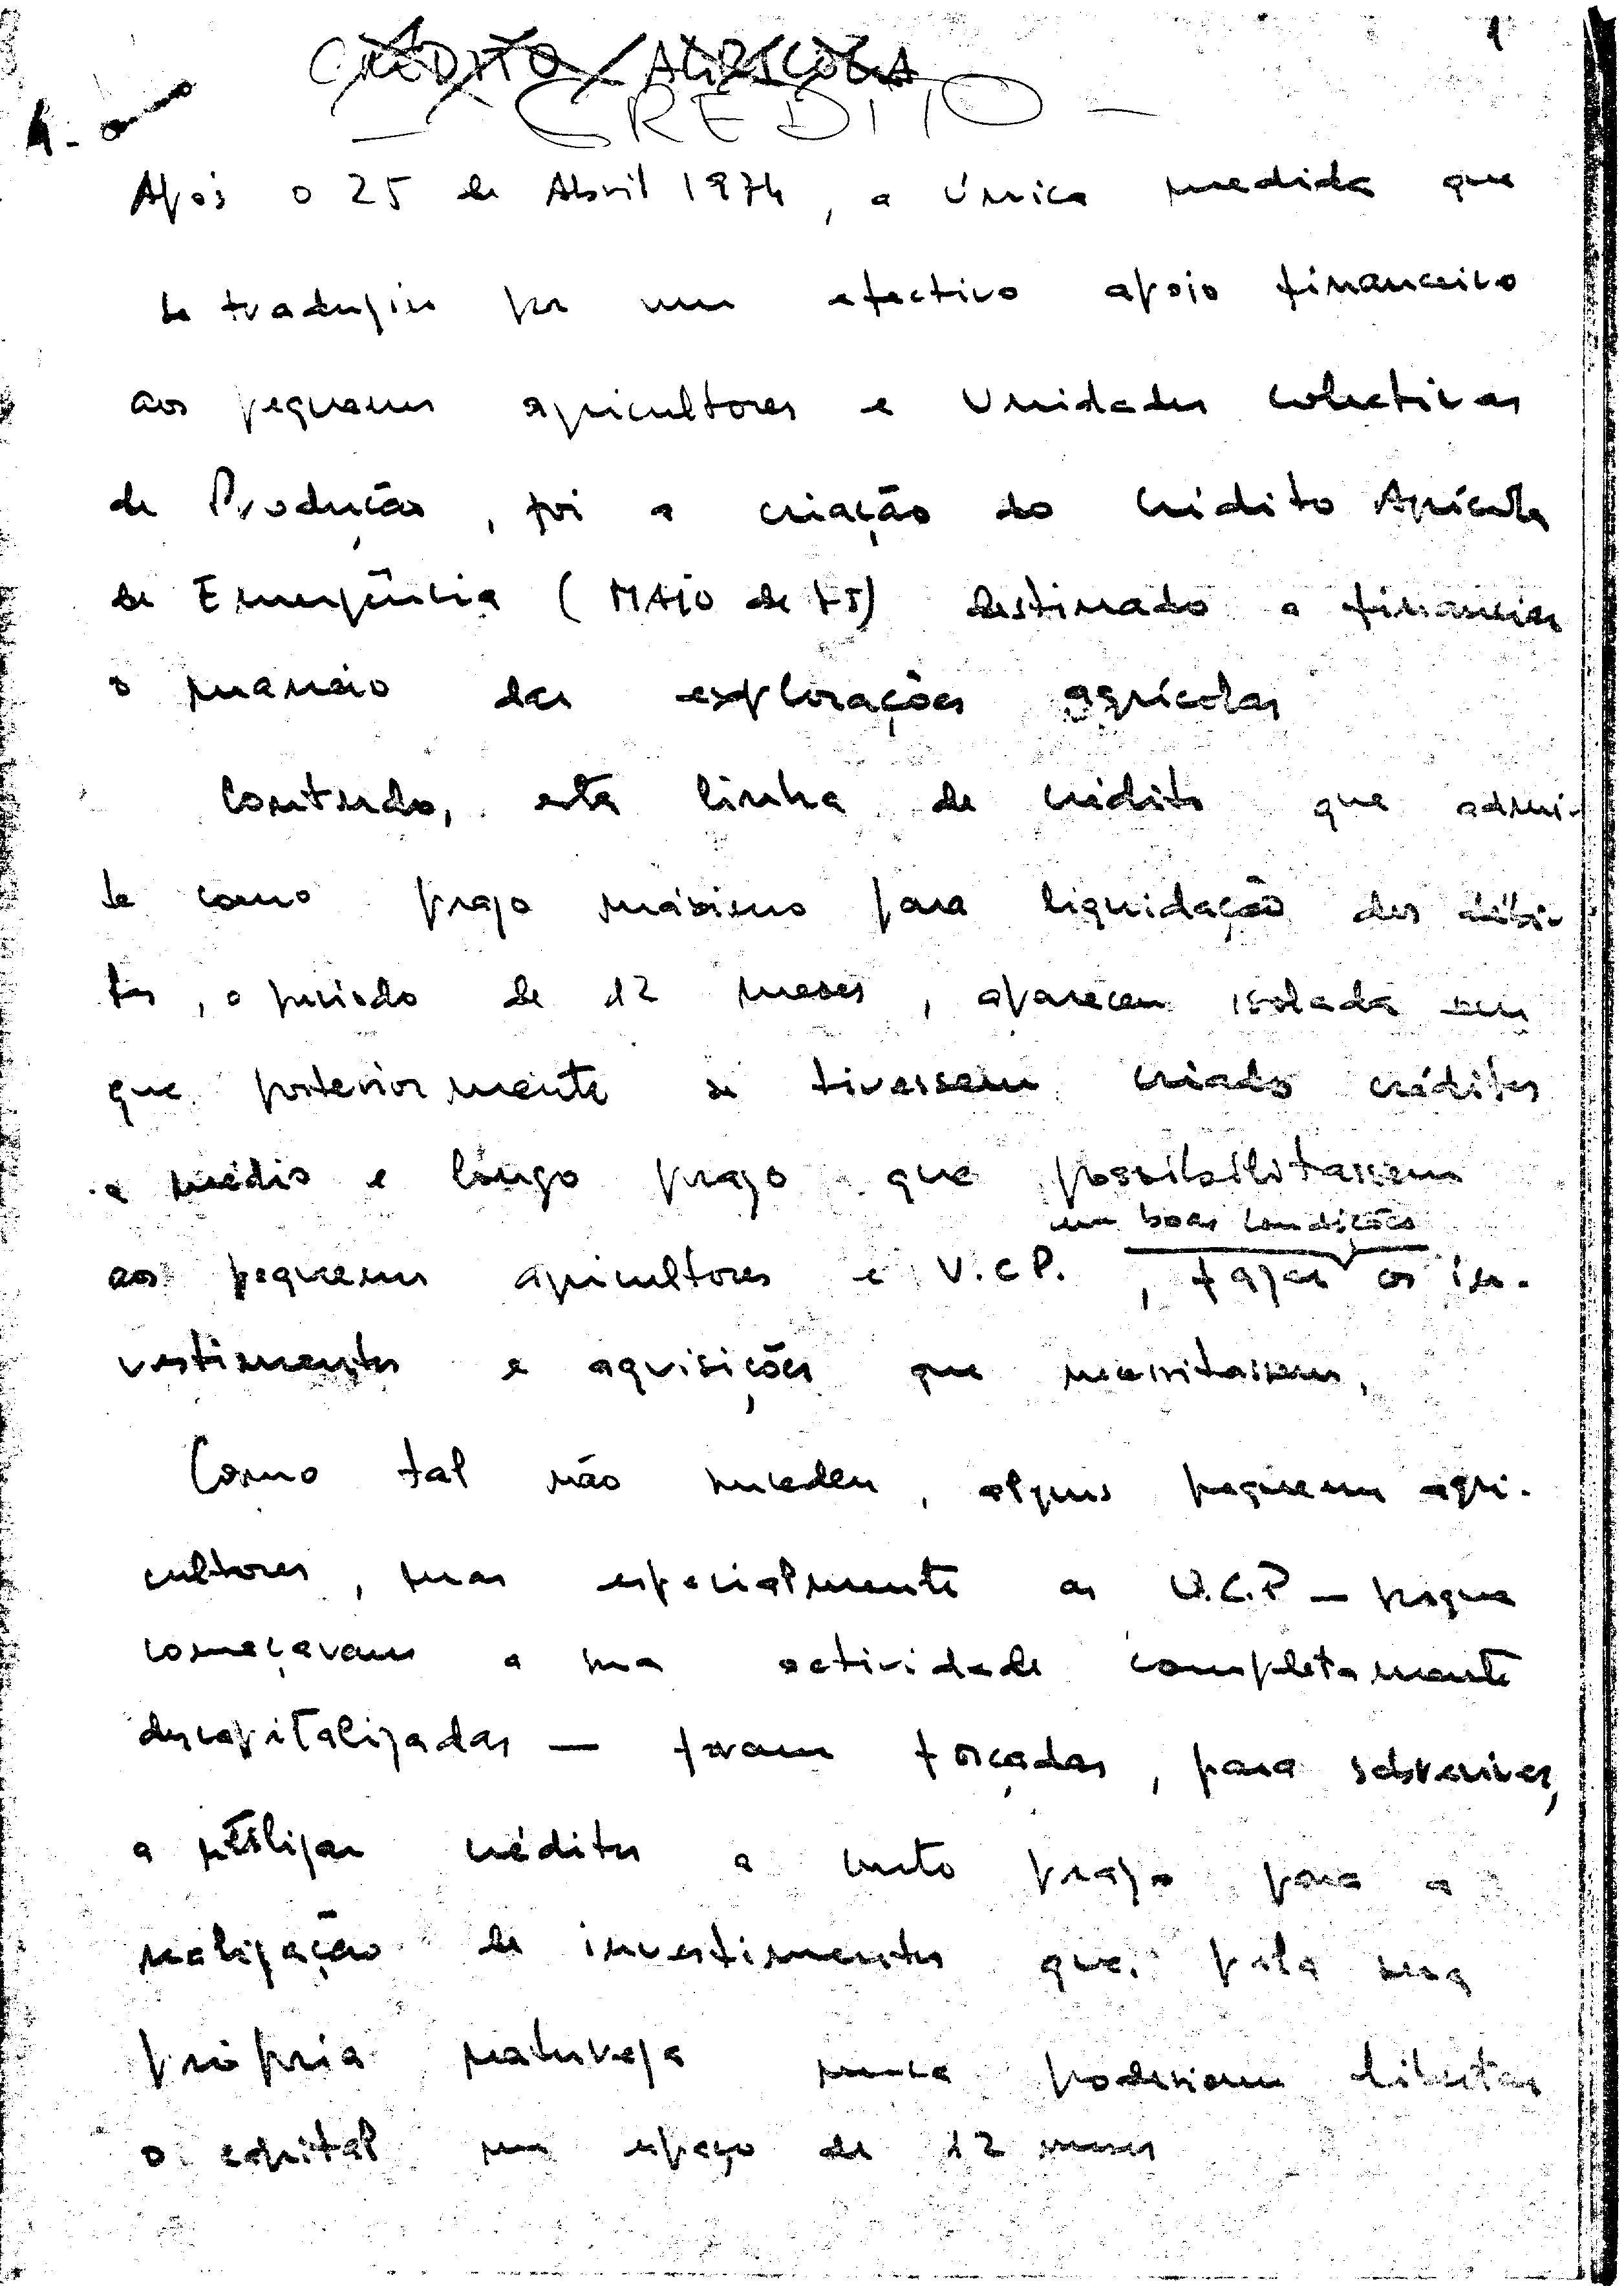 1
CRÉDITO AGRÍCOLA
A -
- CREDITO -
Após o 25 de Abril 1974, a única medida que
se traduziu por um efectivo apoio financeiro
aos pequenos agricultores e Unidades colectivas
de Produção, foi a criação do Crédito Agrícola
de Emergência (MAIO de 75) destinado a financiar
o maneio das explorações agrícolas
Contudo, esta linha de crédito que admi-
te como prazo máximo para liquidação dos débi-
tos, o período de 12 meses, apareceu isolada sem
que posteriormente se tivessem criado créditos
a médio e longo prazo que possibilitassem
em boas condições
aos pequenos agricultores e U.C.P., fazer os in-
vestimentos e aquisições que necessitassem.
Como tal não sucedeu, alguns pequenos agri-
cultores, mas especialmente as U.C.P - porque
começavam a sua actividade completamente
descapitalizadas - foram forçadas, para sobreviver,
a utilizar créditos a curto prazo para a
realização de investimentos que, pela sua
própria natureza nunca poderiam libertar
o capital no espaço de 12 meses